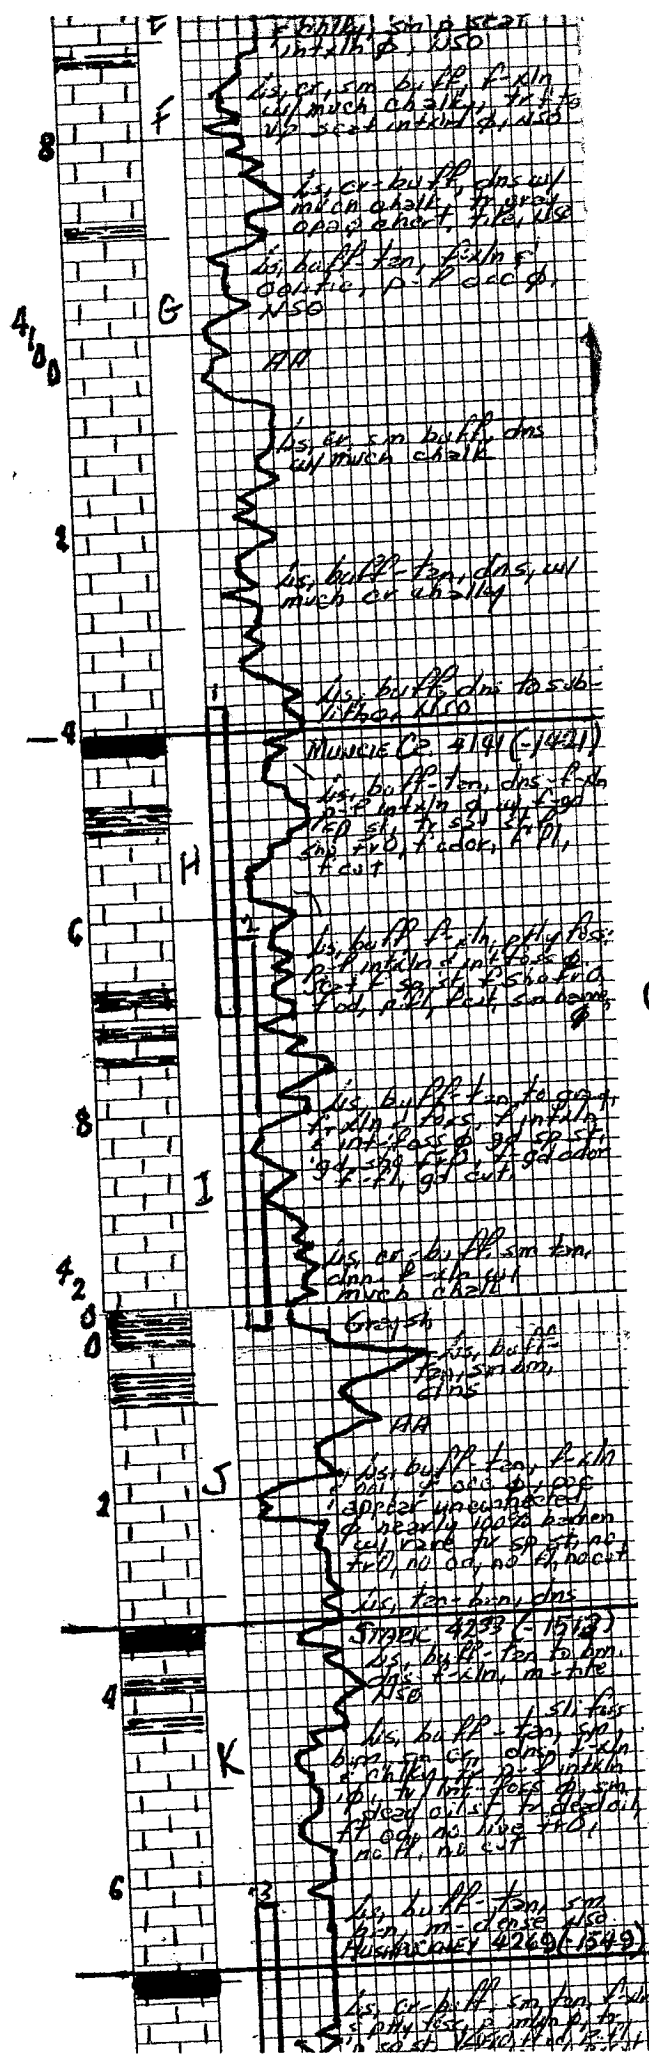 E
chlky, sm p scat
intxln φ, NSO
F
Ls, cr, sm buff, f-xln
w/ much chalk, tr f to
vp scat intxln φ, NSO
8
Ls, cr-buff, dns w/
much chalk, tr gray
opaq chert, tite, NSO
Ls, buff-tan, f-xln &
oolitic, p-f ooc φ,
NSO
G
4100
AA
Ls, cr, sm buff, dns
w/ much chalk
2
Ls, buff-tan, dns, w/
much cr chalky
1
Ls, buff, dns to sub-
litho, NSO
4
MUNCIE CR 4141 (-1421)
Ls, buff-tan, dns-f-xln
p-f intxln φ w/ f-gd
sp st, tr sat st, f
shg frO, f odor, f fl,
f cut
H
2
6
Ls, buff f-xln, ptly foss,
p-f intxln & int foss φ,
scat f sp st, f sho frO
f od, p fl, f cut, sm barren
φ
Ls, buff-tan to gray,
f-xln & foss, f intxln
& int-foss φ, gd sp st,
gd shg frO, f-gd odor
f-fl, gd cut,
8
I
Ls, cr-buff, sm tan,
dns, f-xln w/
much chalk
4200
Gray sh
Ls, buff-
tan, sm brn,
dns
AA
J
Ls, buff-tan, f-xln
& ool, f ooc φ, ooc
appear unconnected
φ nearly 100% barren
w/ rare tr sp st, no
frO, no od, no fl, no cut
2
Ls, tan-brn, dns
STARK 4233 (-1513)
Ls, buff-tan to brn,
dns f-xln, m-tite
NSO
4
sli foss
Ls, buff-tan, sm
brn, sm cr, dns, f-xln
& chlky, tr p-f intxln
φ, tr int-foss φ, sm
dead oil st, tr dead oil,
ft od, no live frO,
no fl, no cut
K
6
3
Ls, buff-tan, sm
brn, m-dense NSO
HUSHPUCKNEY 4269 (-1549)
Ls, cr-buff, sm tan, f-xln
& ptly foss, p intxln φ, tr